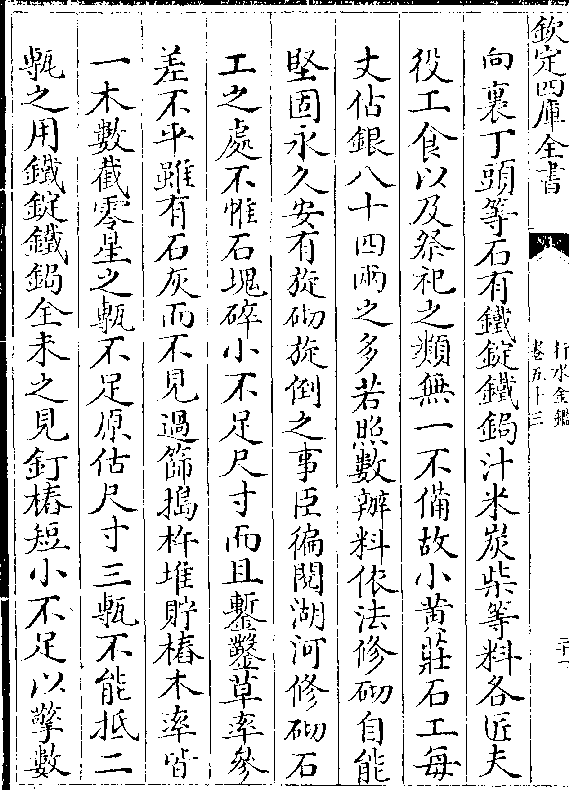 欽定四庫全書
行水金鑑
卷五十三
向裏丁頭等石有鐵錠鐵鍋汁米炭柴等料各匠夫
役工食以及祭祀之類無一不備故小黄莊石工每
丈估銀八十四兩之多若照數辦料依法修砌自能
堅固永久安有旋砌旋倒之事臣徧閱湖河修砌石
工之處不惟石塊碎小不足尺寸而且鏨鑿草率參
差不平雖有石灰而不見過篩搗杵堆貯樁木率皆
一木數截零星之甎不足原估尺寸三甎不能抵二
甎之用鐵錠鐵鍋全未之見釘樁短小不足以擎數